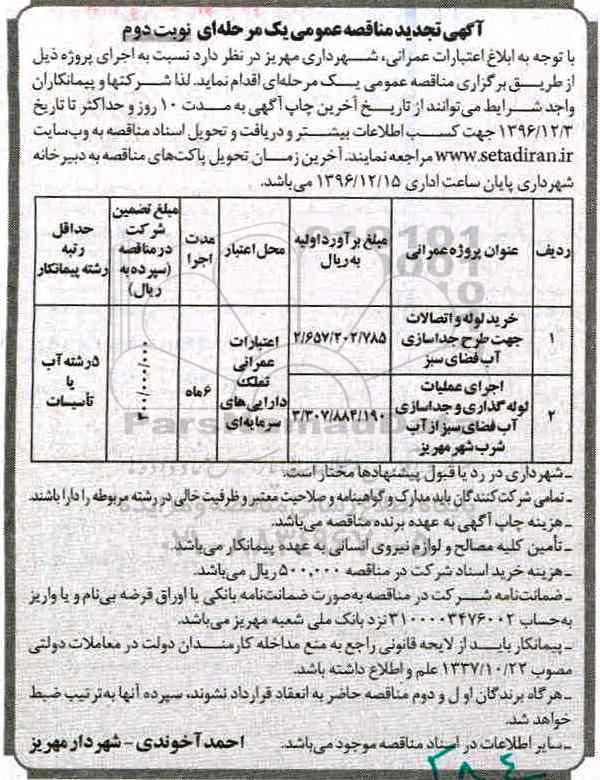 آگهی تجدید مناقصه عمومی یک مرحله‌ای نوبت دوم
با توجه به ابلاغ اعتبارات عمرانی، شهرداری مهریز در نظر دارد نسبت به اجرای پروژه ذیل
از طریق برگزاری مناقصه عمومی یک مرحله‌ای اقدام نماید. لذا شرکتها و پیمانکاران
واجد شرایط می‌توانند از تاریخ آخرین چاپ آگهی به مدت ۱۰ روز و حداکثر تا تاریخ
۱۳۹۶/۱۲/۳ جهت کسب اطلاعات بیشتر و دریافت و تحویل اسناد مناقصه به وب‌سایت
www.setadiran.ir مراجعه نمایند. آخرین زمان تحویل پاکت‌های مناقصه به دبیرخانه
شهرداری پایان ساعت اداری ۱۳۹۶/۱۲/۱۵ می‌باشد.
ردیف
عنوان پروژه عمرانی
مبلغ برآورد اولیه
به ریال
محل اعتبار
مدت
اجرا
مبلغ تضمین
شرکت
در مناقصه
(سپرده به
ریال)
حداقل
رتبه
رشته پیمانکار
۱
خرید لوله و اتصالات
جهت طرح جداسازی
آب فضای سبز
۲/۶۵۷/۲۰۲/۷۸۵
۲
اجرای عملیات
لوله گذاری و جداسازی
آب فضای سبز از آب
شرب شهر مهریز
۳/۳۰۷/۸۸۴/۱۹۰
اعتبارات
عمرانی
تملک
دارایی‌های
سرمایه‌ای
۶ ماه
۳۰۰/۰۰۰/۰۰۰
۵ رشته آب
یا
تأسیسات
ـ شهرداری در رد یا قبول پیشنهادها مختار است.
ـ تمامی شرکت کنندگان باید مدارک و گواهینامه و صلاحیت معتبر و ظرفیت خالی در رشته مربوطه را دارا باشند.
ـ هزینه چاپ آگهی به عهده برنده مناقصه می‌باشد.
ـ تأمین کلیه مصالح و لوازم نیروی انسانی به عهده پیمانکار می‌باشد.
ـ هزینه خرید اسناد شرکت در مناقصه ۵۰۰,۰۰۰ ریال می‌باشد.
ـ ضمانت‌نامه شرکت در مناقصه به‌صورت ضمانت‌نامه بانکی یا اوراق قرضه بی‌نام و یا واریز
به‌حساب ۳۱۰۰۰۰۳۴۷۶۰۰۲ نزد بانک ملی شعبه مهریز می‌باشد.
ـ پیمانکار باید از لایحه قانونی راجع به منع مداخله کارمندان دولت در معاملات دولتی
مصوب ۱۳۳۷/۱۰/۲۲ علم و اطلاع داشته باشد.
ـ هر گاه برندگان اول و دوم مناقصه حاضر به انعقاد قرارداد نشوند، سپرده آنها به ترتیب ضبط
خواهد شد.
ـ سایر اطلاعات در اسناد مناقصه موجود می‌باشد.
احمد آخوندی - شهردار مهریز